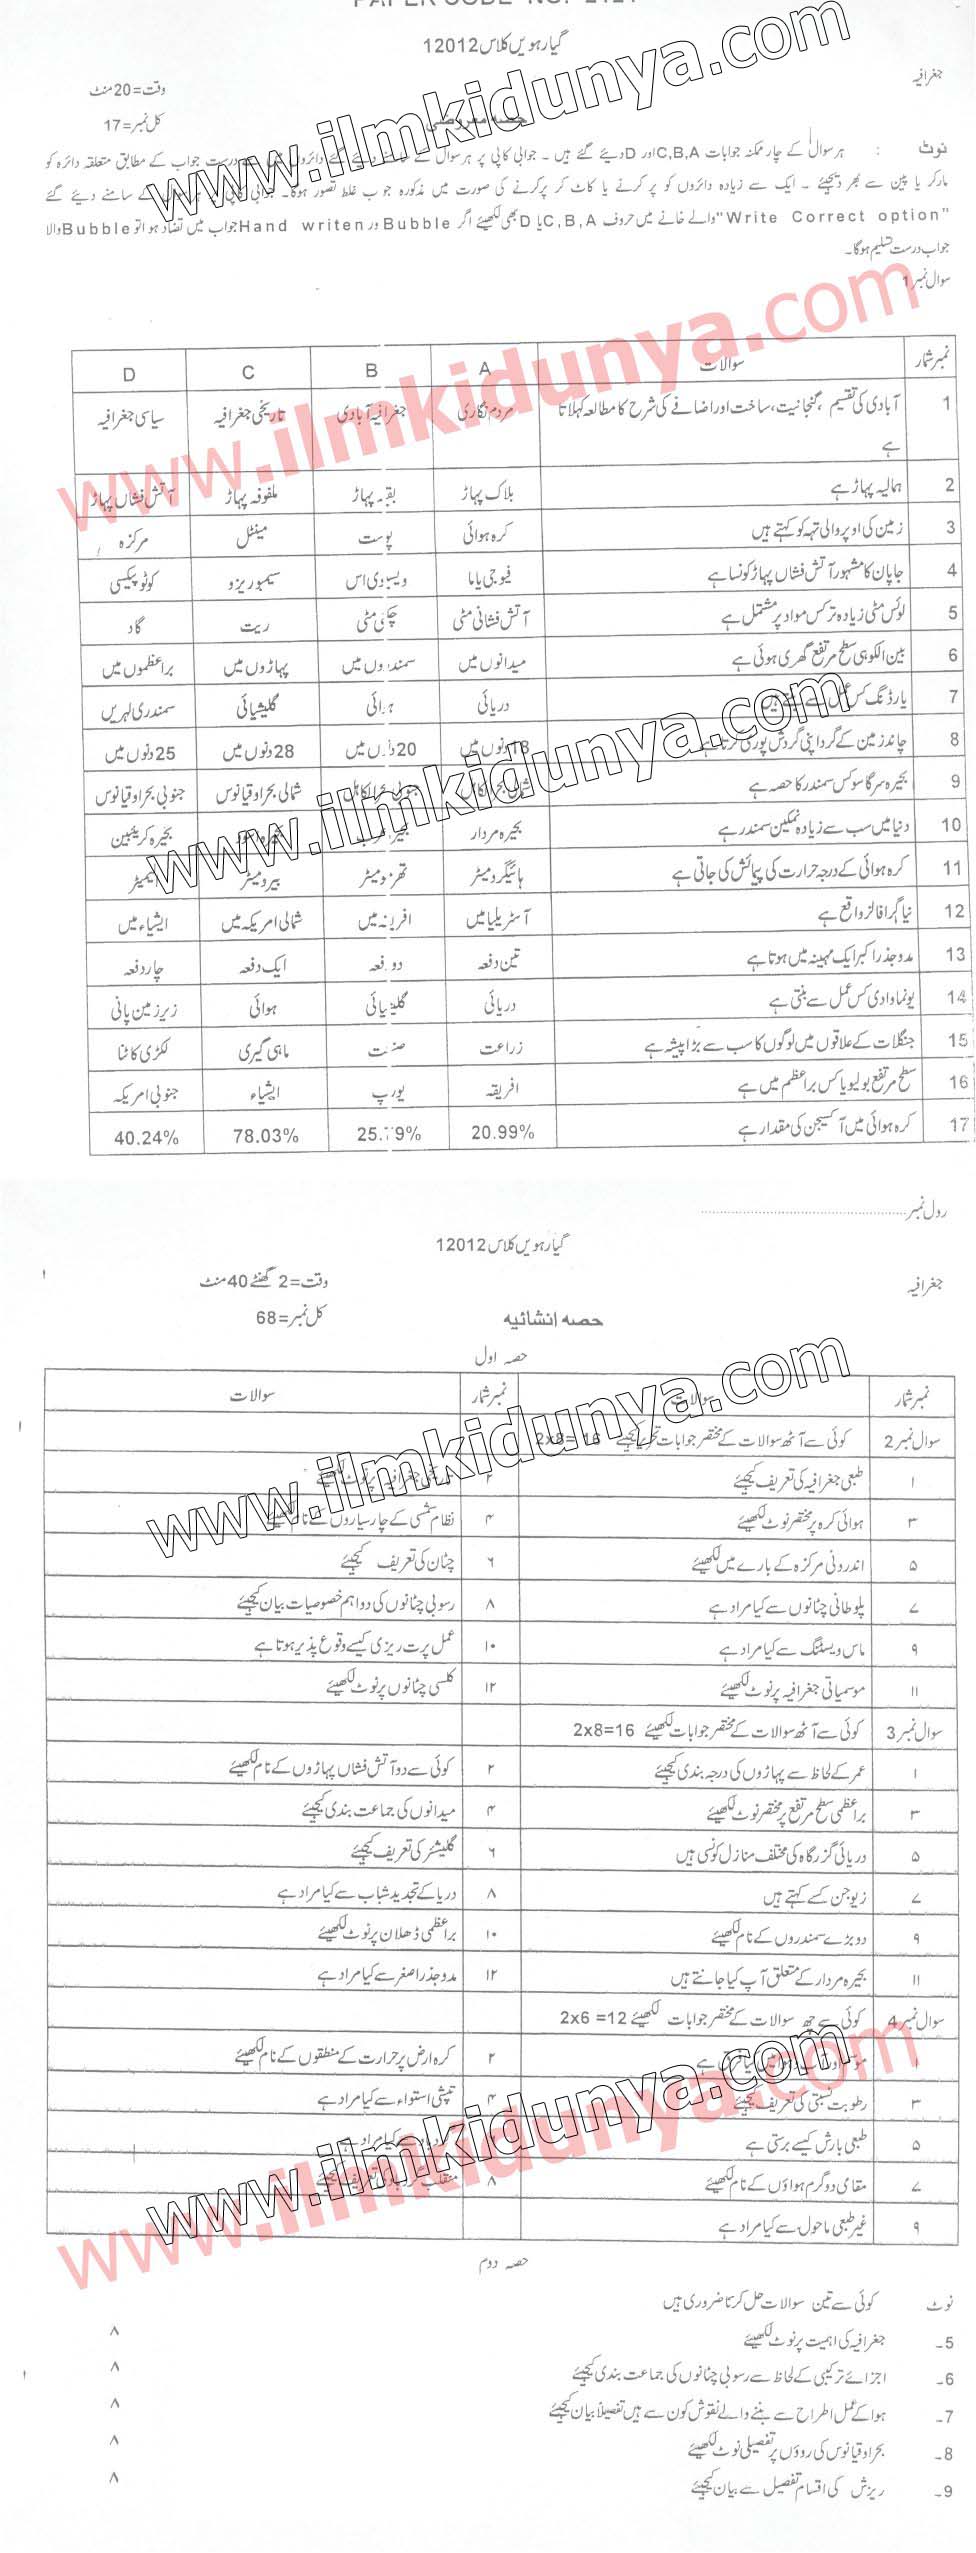 PAPER CODE NO:
گیارہویں کلاس 12012
جغرافیہ
وقت=20 منٹ
کل نمبر=17
حصہ معروضی
نوٹ : ہر سوال کے چار ممکنہ جوابات C,B,A اور D دیئے گئے ہیں ۔ جوابی کاپی پر ہر سوال کے سامنے دیئے گئے دائروں میں سے درست جواب کے مطابق متعلقہ دائرہ کو
مارکر یا پین سے بھر دیجئے ۔ ایک سے زیادہ دائروں کو پر کرنے یا کاٹ کر پر کرنے کی صورت میں مذکورہ جواب غلط تصور ہوگا۔ جوابی کاپی پر سوال کے سامنے دیئے گئے
"Write Correct option" والے خانے میں حروف C,B,A یا D بھی لکھیئے اگر Bubble اور Hand writen جواب میں تضاد ہو اتو Bubble والا
جواب درست تسلیم ہوگا۔
سوال نمبر 1
نمبر شمار سوالات A B C D
1 آبادی کی تقسیم، گنجانیت، ساخت اور اضافے کی شرح کا مطالعہ کہلاتا ہے مردم نگاری جغرافیہ آبادی تاریخی جغرافیہ سیاسی جغرافیہ
2 ہمالیہ پہاڑ ہے بلاک پہاڑ بقیہ پہاڑ ملفوفہ پہاڑ آتش فشاں پہاڑ
3 زمین کی اوپر والی تہہ کو کہتے ہیں کرہ ہوائی پوست مینٹل مرکزہ
4 جاپان کا مشہور آتش فشاں پہاڑ کونسا ہے فیوجی یاما ویسووی اس سیمبوریزو کوٹوپیکسی
5 لوئس مٹی زیادہ تر کس مواد پر مشتمل ہے آتش فشانی مٹی چکنی مٹی ریت گاد
6 بین الکوہی سطح مرتفع گھری ہوئی ہے میدانوں میں سمندروں میں پہاڑوں میں براعظموں میں
7 یارڈنگ کس عمل سے بنتے ہیں دریائی ہوائی گلیشیائی سمندری لہریں
8 چاند زمین کے گرد اپنی گردش پوری کرتا ہے 18 دنوں میں 20 دنوں میں 28 دنوں میں 25 دنوں میں
9 بحیرہ سرگاسو کس سمندر کا حصہ ہے شمالی بحرالکاہل جنوبی بحرالکاہل شمالی بحر اوقیانوس جنوبی بحر اوقیانوس
10 دنیا میں سب سے زیادہ نمکین سمندر ہے بحیرہ مردار بحیرہ عرب بحیرہ بحیرہ کریبین
11 کرہ ہوائی کے درجہ حرارت کی پیمائش کی جاتی ہے ہائیگرو میٹر تھرمو میٹر بیرومیٹر
12 نیاگرا فالز واقع ہے آسٹریلیا میں افریقہ میں شمالی امریکہ میں ایشیاء میں
13 مدوجذر اکبر ایک مہینہ میں ہوتا ہے تین دفعہ دو دفعہ ایک دفعہ چار دفعہ
14 یو نما وادی کس عمل سے بنتی ہے دریائی گلیشیائی ہوائی زیر زمین پانی
15 جنگلات کے علاقوں میں لوگوں کا سب سے بڑا پیشہ ہے زراعت صنعت ماہی گیری لکڑی کاٹنا
16 سطح مرتفع بولیویا کس براعظم میں ہے افریقہ یورپ ایشیاء جنوبی امریکہ
17 کرہ ہوائی میں آکسیجن کی مقدار ہے 20.99% 25.79% 78.03% 40.24%
رول نمبر
گیارہویں کلاس 12012
جغرافیہ
وقت=2 گھنٹے 40 منٹ
حصہ انشائیہ
کل نمبر=68
حصہ اول
نمبر شمار سوالات نمبر شمار سوالات
سوال نمبر 2 کوئی سے آٹھ سوالات کے مختصر جوابات تحریر کیجیئے 2x8= 16
۱ طبعی جغرافیہ کی تعریف کیجیئے ۲ تاریخی جغرافیہ پر نوٹ لکھیئے
۳ ہوائی کرہ پر مختصر نوٹ لکھیئے ۴ نظام شمسی کے چار سیاروں کے نام لکھیئے
۵ اندرونی مرکزہ کے بارے میں لکھیئے ۶ چٹان کی تعریف کیجیئے
۷ پلوطانی چٹانوں سے کیا مراد ہے ۸ رسوبی چٹانوں کی دو اہم خصوصیات بیان کیجیئے
۹ ماس ویسٹنگ سے کیا مراد ہے ۱۰ عمل پرت ریزی کیسے وقوع پذیر ہوتا ہے
۱۱ موسمیاتی جغرافیہ پر نوٹ لکھیئے ۱۲ کلسی چٹانوں پر نوٹ لکھیئے
سوال نمبر 3 کوئی سے آٹھ سوالات کے مختصر جوابات لکھیئے 2x8=16
۱ عمر کے لحاظ سے پہاڑوں کی درجہ بندی کیجیئے ۲ کوئی سے دو آتش فشاں پہاڑوں کے نام لکھیئے
۳ براعظمی سطح مرتفع پر مختصر نوٹ لکھیئے ۴ میدانوں کی جماعت بندی کیجیئے
۵ دریائی گزرگاہ کی مختلف منازل کونسی ہیں ۶ گلیشئر کی تعریف کیجیئے
۷ زیوجن کسے کہتے ہیں ۸ دریا کے تجدید شباب سے کیا مراد ہے
۹ دو بڑے سمندروں کے نام لکھیئے ۱۰ براعظمی ڈھلان پر نوٹ لکھیئے
۱۱ بحیرہ مردار کے متعلق آپ کیا جانتے ہیں ۱۲ مدوجذر اصغر سے کیا مراد ہے
سوال نمبر 4 کوئی سے چھ سوالات کے مختصر جوابات لکھیئے 2x6 =12
۱ موسم اور آب و ہوا میں کیا فرق ہے ۲ کرہ ارض پر حرارت کے منطقوں کے نام لکھیئے
۳ رطوبت نسبتی کی تعریف کیجیئے ۴ تپشی استواء سے کیا مراد ہے
۵ طبعی بارش کیسے برستی ہے ۶ گردباد سے کیا مراد ہے
۷ مقامی دو گرم ہواؤں کے نام لکھیئے ۸ منقلب گردباد کی تعریف کیجیئے
۹ غیر طبعی ماحول سے کیا مراد ہے
حصہ دوم
نوٹ کوئی سے تین سوالات حل کرنا ضروری ہیں
5۔ جغرافیہ کی اہمیت پر نوٹ لکھیئے ۸
6۔ اجزائے ترکیبی کے لحاظ سے رسوبی چٹانوں کی جماعت بندی کیجیئے ۸
7۔ ہوا کے عمل اطراح سے بننے والے نقوش کون سے ہیں تفصیلاً بیان کیجیئے ۸
8۔ بحر اوقیانوس کی روؤں پر تفصیلی نوٹ لکھیئے ۸
9۔ ریزش کی اقسام تفصیل سے بیان کیجیئے ۸
www.ilmkidunya.com
www.ilmkidunya.com
www.ilmkidunya.com
www.ilmkidunya.com
www.ilmkidunya.com
www.ilmkidunya.com